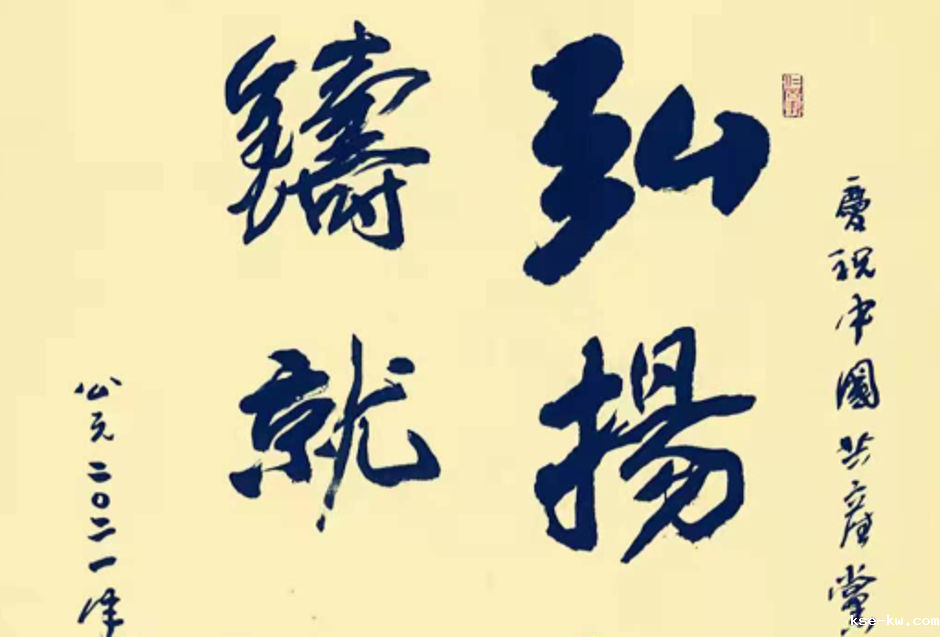 慶祝中國共產黨
弘揚
鑄就
公元二〇二一年
kse-kw.com